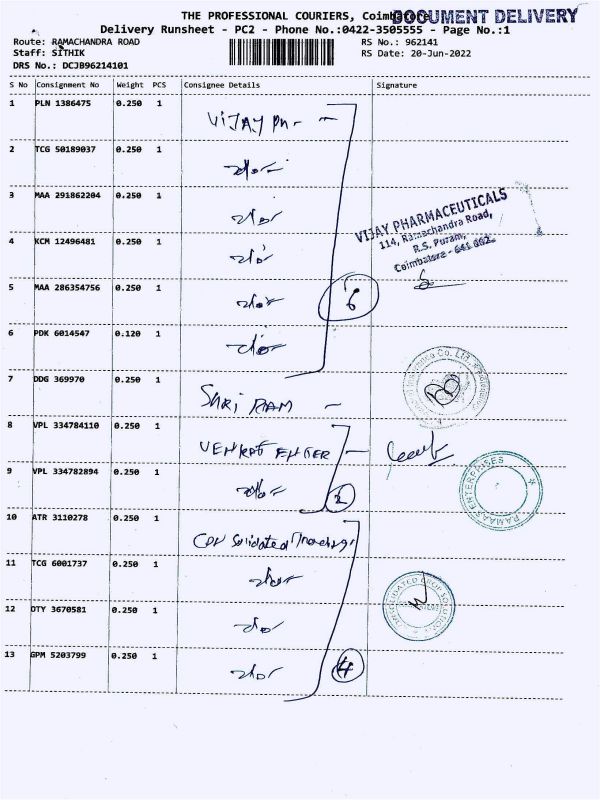 THE PROFESSIONAL COURIERS, Coimbatore
DOCUMENT DELIVERY
Delivery Runsheet - PC2 - Phone No.:0422-3505555 - Page No.:1
Route: RAMACHANDRA ROAD RS No.: 962141
Staff: SITHIK RS Date: 20-Jun-2022
DRS No.: DCJB96214101
S No Consignment No Weight PCS Consignee Details Signature
1 PLN 1386475 0.250 1 VIJAY PH
2 TCG 50189037 0.250 1
3 MAA 291862204 0.250 1
VIJAY PHARMACEUTICALS
114, Ramachandra Road,
R.S. Puram,
Coimbatore - 641 002.
4 KCM 12496481 0.250 1
5 MAA 286354756 0.250 1
6
6 PDK 6014547 0.120 1
7 DDG 369970 0.250 1 SHRI RAM
8 VPL 334784110 0.250 1 VENKAT ENTER
RAMAAS ENTERPRISES
9 VPL 334782894 0.250 1
2
10 ATR 3110278 0.250 1 Consolidated
11 TCG 6001737 0.250 1
12 OTY 3670581 0.250 1
13 GPM 5203799 0.250 1
4